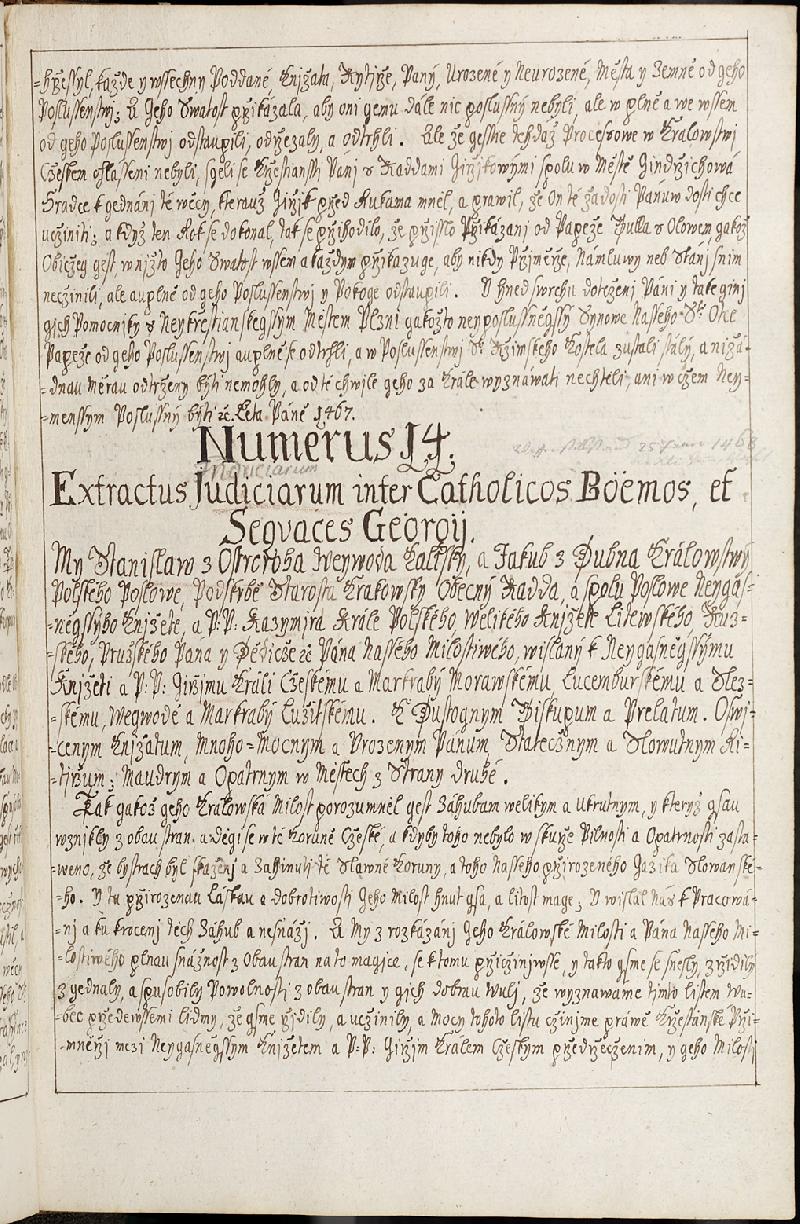 =hřessyl, každe y wssechny Poddané Knižata, Rytjře, Pany, Urozené y Neurozené, Města y Zemně od geho
Poslussenstwj; A Geho Swatost přikázala, aby oni gemu dále nic poslussny nebyli, ale w plně a we wssem
od geho Poslussenstwj odstaupili, odřezaly, a odtrhli. Ale že gestie tehdáž Procesowe w Kralowstwj
Cžeskem ohlasseni nebyli, sgeli se Křestiansti Panj s Raddami Giržikowými spolu w Městě Gindržichowa
Hradce k gednánj té wěcy, kterauž Giržjk před Rukama mněl, a prawil, že On té žadosti Pánuw dosti chce
ucžiniti; a když ten Rok se dokonal, tak se přihodilo, že přisslo Přikázanj od Papeže Bulla s Olowem gakož
Obicžeg gest w nižto Geho Swatost wssem a každym přikazuge, aby nikdy Přjmeřže, Námluwy neb Stanj s njm
necžinili, ale auplně od geho Poslussenstwj y Pokoge odstaupili. Y hned swrchu dotcženj Páni y také ginj
gich Pomocnjky s Neykřestianskegssým Městem Plzni gakožto neyposlussněgssy Synowe Nasseho Ste Otce
Papeže od geho Poslussenstwj auplně se odtrhli, a w Poslussenstwj Ste Ržimskeho Kostela zustali stály, a nižá=
=dnau měrau odtrženy býti nemohly, a od té chwjle geho za Krále wyznáwati nechtěli, ani w cžem Ney=
=menssym Poslussný býti &c. Leta Páně 1467.
Numerus 14.
Induciarum
25 Juni 1468
Extractus Judiciarum inter Catholicos Böemos, et
Sequaces Georgij.
My Stanislaw z Ostroroha Weywoda Kalisky, a Jakub z Dubna Králowstwj
Polského Poslowe, Podskrbě Starosta Krakowsky Obecný Radda, a spolu Poslowe Neygás=
=něgssyho Knižete, a P: P: Kazymira Krále Polského, Welikého Knižete Litewského Rus=
=ského, Pruského Pana y Dědicže &c Pána Nasseho Milostiwého, wislany k Neygasněgssýmu
Knižeti a P: P: Giržjmu Králi Cžeskému a Markrabý Morawskému, Lucemburskému a Slez=
=skému, wegwodě a Markrabý Lužitskému. K Dustognym Biskupum a Prelatum. Oswj=
=cenym Knižatum, Mnoho=Mocnym a Urozenym Pánum Statecžnym a Slowutnym Ri=
=tjržum; Maudrym a Opatrnym w Městech z Strany druhé.
Jak gakož geho Králowská Milost porozumněl gest Záhubam welikym a ukrutnym, y kteryž gsau
wznikly z obau stran a děgi se w té Koruně Cžeské, a kdyby toho nebylo w skutře Pilnosti a Opatrnosti zasta=
=weno, že by strach byl skaženj a Zahinutj té Slawné Koruny, a toho Nasseho přirozeného Gazika Slowanské=
=ho. Y tu přirozenau Láskau a dobrotiwosti Geho Milost hnut gsa, a litost mage; Y wislal Nás k Pracowá=
=nj a ku krocenj těch Záhub a nesnázj. A My z rozkázánj Geho Králowské Milosti a Pána Nasseho Mi=
=lostiwého plnau snážnost z Obau stran na to magjce, se k tomu přicžinjwsse, y takto gsme se snesly, zřidily
zgednaly, a spusobily Powolnosti z obau stran y gich dobrau Wulj, že wyznawame tjmto listem Wu=
=bec předewssemi lidmy, že gsme zřjdily, a ucžiniby, a Mocy tohoto listu cžinjme práwé Křzestanské Při=
=mněřj mezi Neygasněgssym Knižetem a P: P: Giržjm Králem Cžeskym předřecženim, y geho Milosti